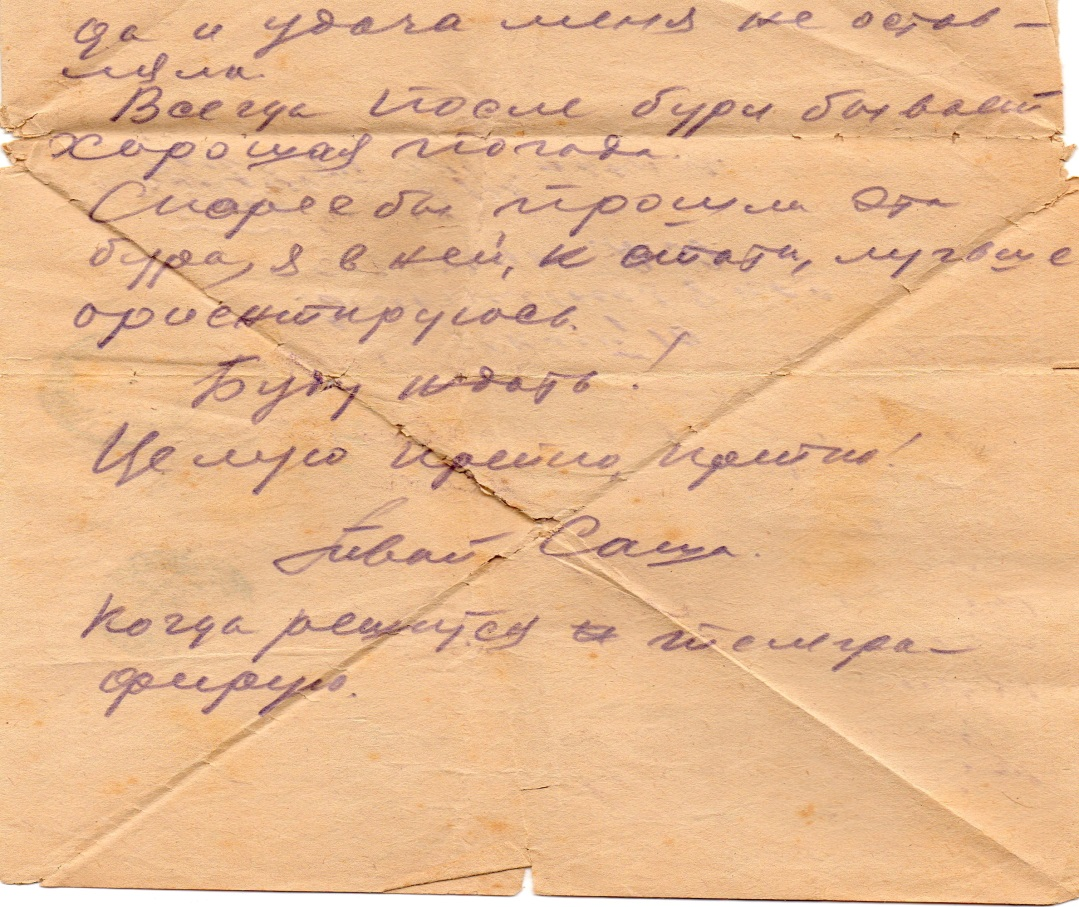 да и удача меня не остав-
ляла.
Всегда после бури бывает
хорошая погода.
Скорее бы прошла эта
буря, я в ней, к стати, лучьше
ориентируюсь.
Буду ждать!
Целую крепко, крепко!
Твой Саша.
Когда решится телегра-
фирую.